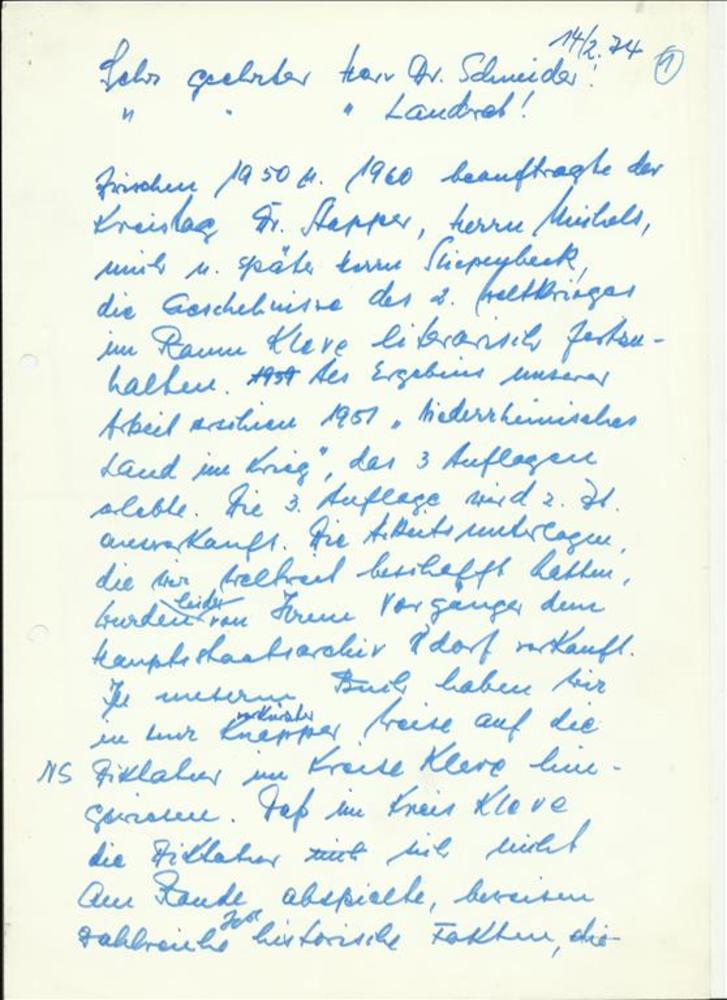 14/2. 74 1
Sehr geehrter Herr Dr. Schneider!
" " " Landrat!
Zwischen 1950 u. 1960 beauftragte der
Kreistag Dr. Stapper, Herrn Michels,
mich u. später Herrn
die Geschehnisse des 2. Weltkrieges
im Raum Kleve literarisch festzu-
halten. 1951 Als Ergebnis unserer
Arbeit erschien 1951 „Niederrheinisches
Land im Krieg", das 3 Auflagen
erlebte. Die 3. Auflage wird z. Zt.
ausverkauft. Die Arbeitsunterlagen,
die wir weltweit beschafft hatten,
wurden leider von Ihrem Vorgänger dem
Hauptstaatsarchiv Ddorf verkauft.
In unserem Buch haben wir
in nur knapper verkürzter Weise auf die
NS Diktatur im Kreise Kleve hin-
gewiesen. Daß im Kreis Kleve
die Diktatur sich nicht
am Rande abspielte, beweisen
zahlreiche historische Fakten, die